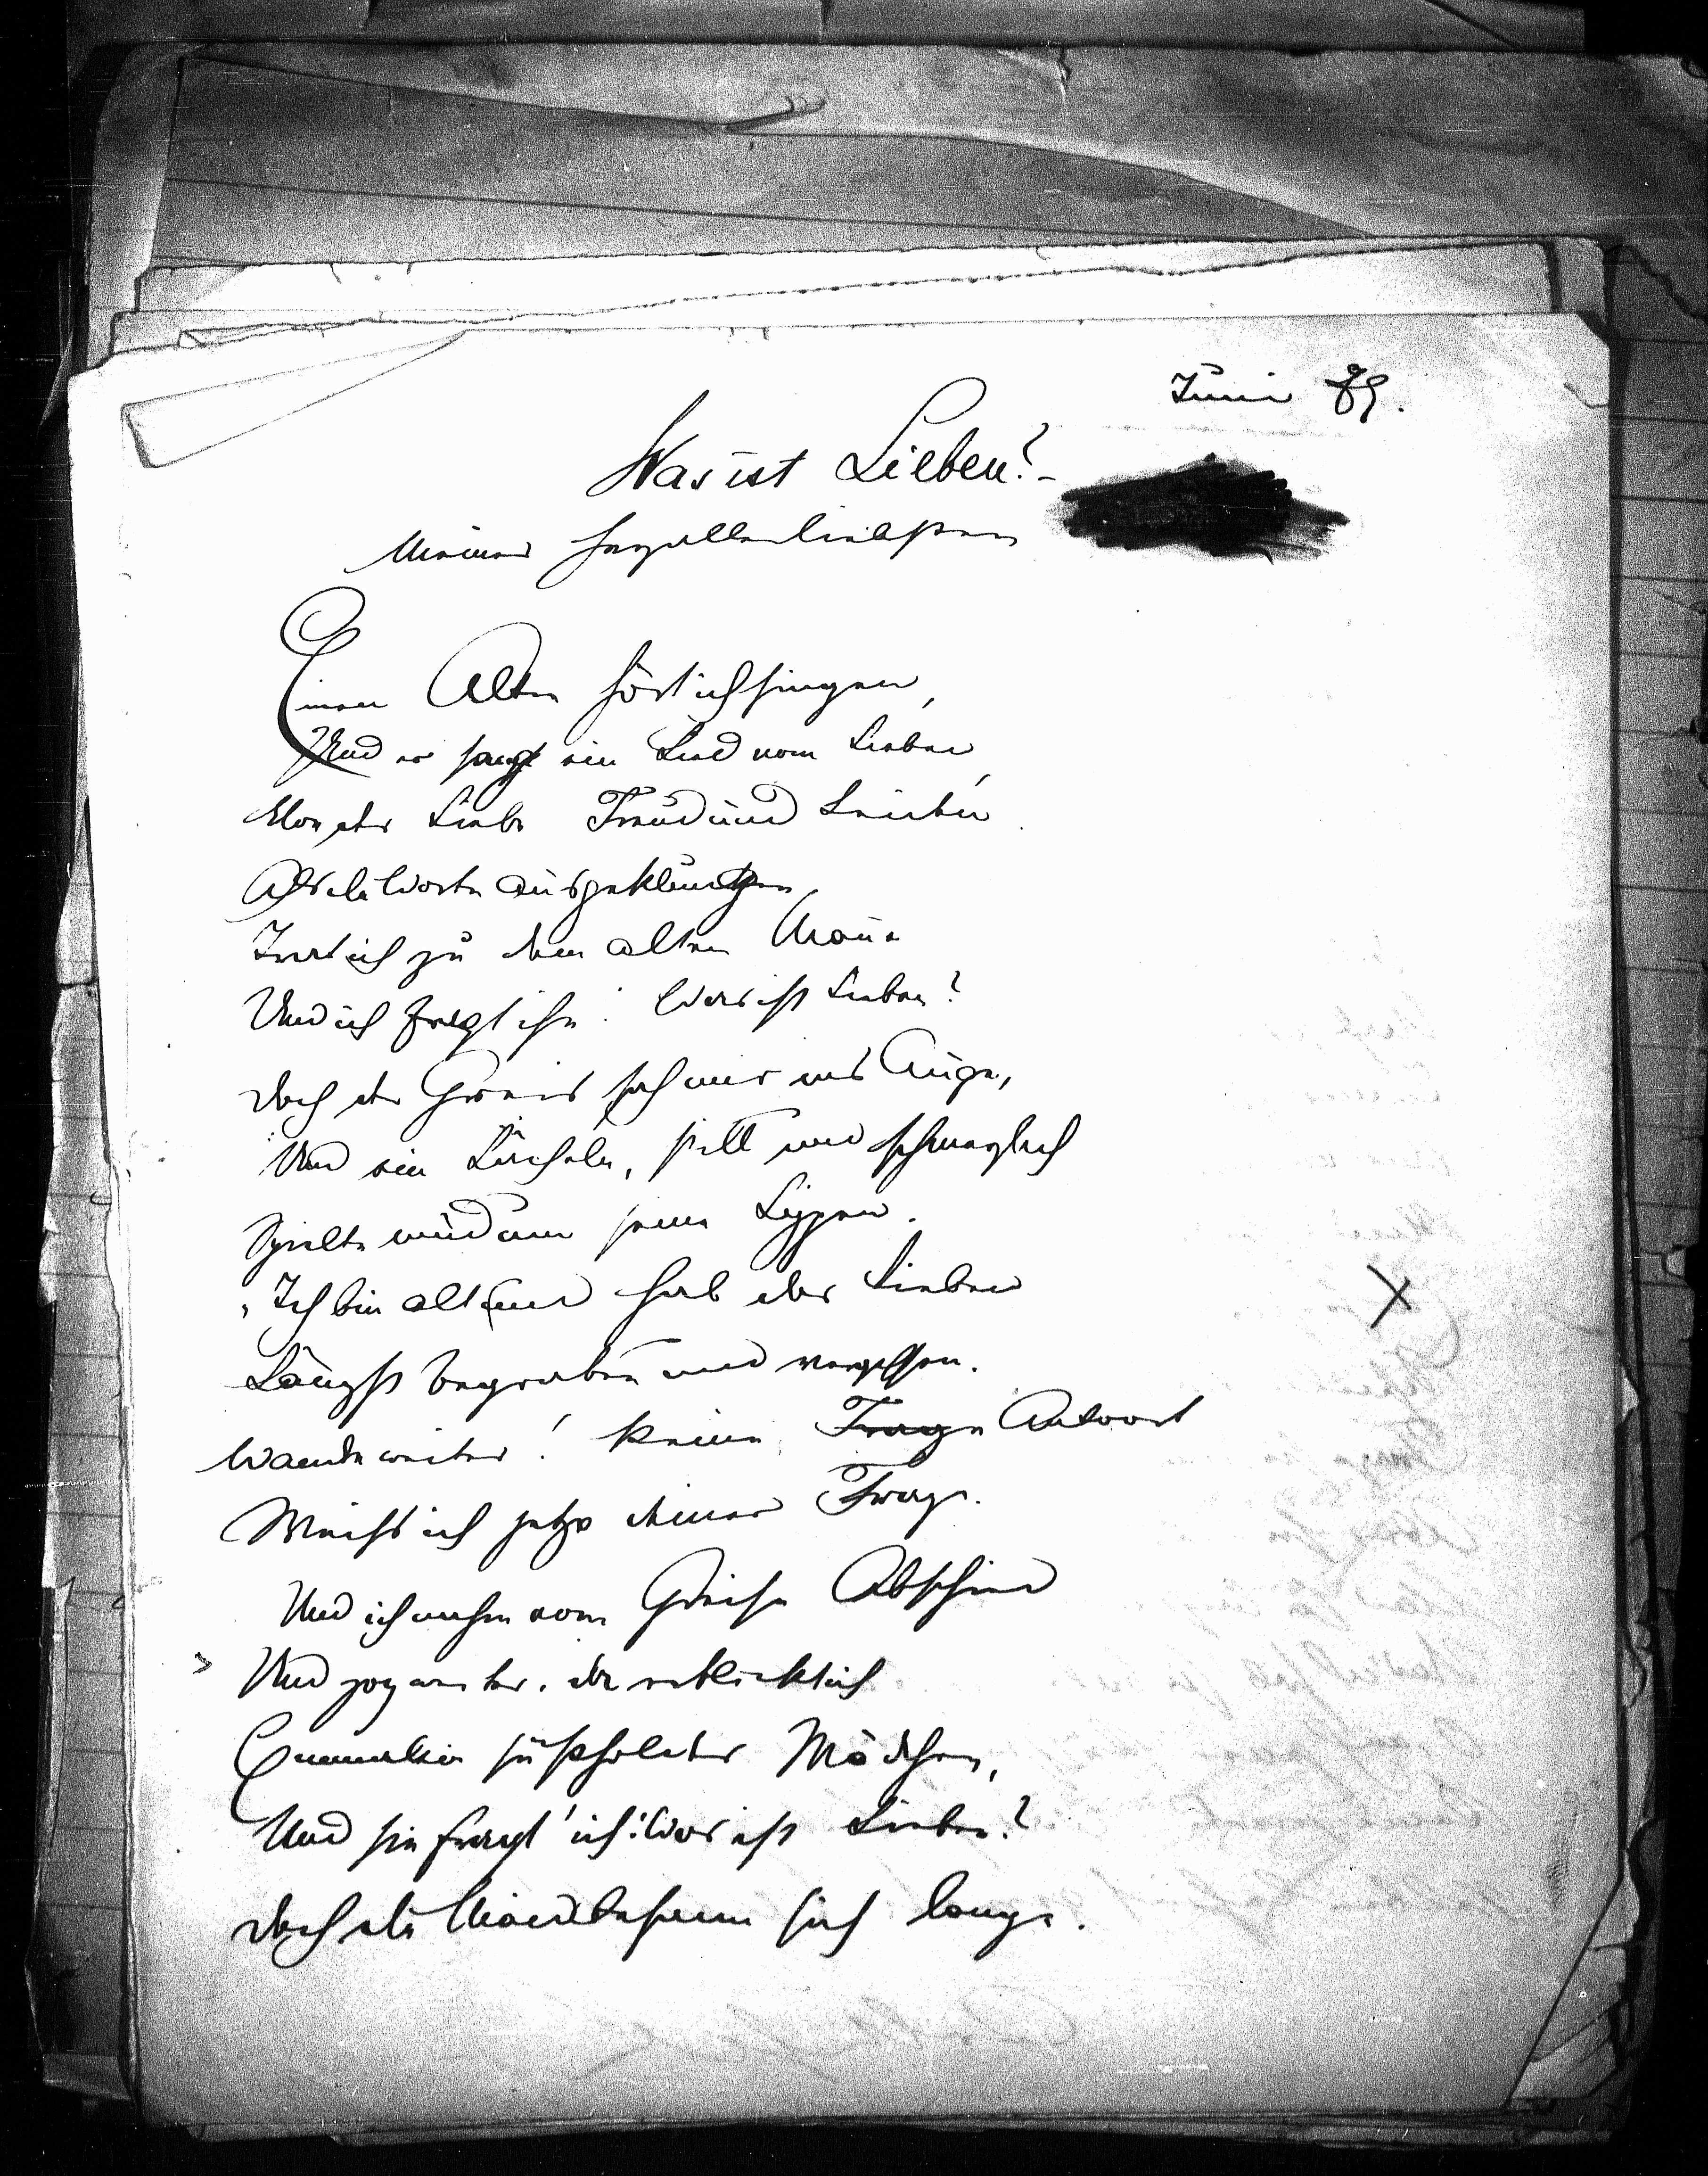 Juni 89.
Was ist Lieben? -
Meiner herzallerliebsten
Einen Alten hört ich singen,
Und er sang ein Lied vom Lieben,
Von der Liebe Freud und Leiden.
Als die Worte ausgeklungen,
Trat ich zu dem alten Manne
Und ich fragt ihn: Was ist Lieben?
Doch der Greis sah mir ins Auge,
Und ein Lächeln, still und schmerzlich
Spielte müd um seine Lippen.
„Ich bin alt und hab das Lieben
Längst begraben und vergessen.
Wandre weiter! Keine Frage Antwort
Weiß ich jetzt deiner Frage.
Und ich nahm vom Greise Abschied
Und zog weiter. Da erblickt ich
Einmal ein süßholdes Mädchen,
Und sie fragt' ich: Was ist Lieben?
Doch die Maid besann sich lange.